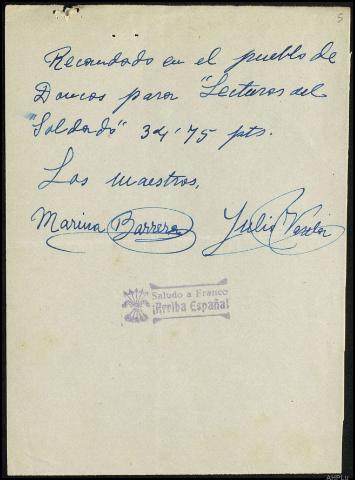 5
Recaudado en el pueblo de
Doncos para "Lecturas del
Soldado" 34'75 pts.
Los maestros,
Marina Barrera Julio
Saludo a Franco
¡Arriba España!
AHPLu